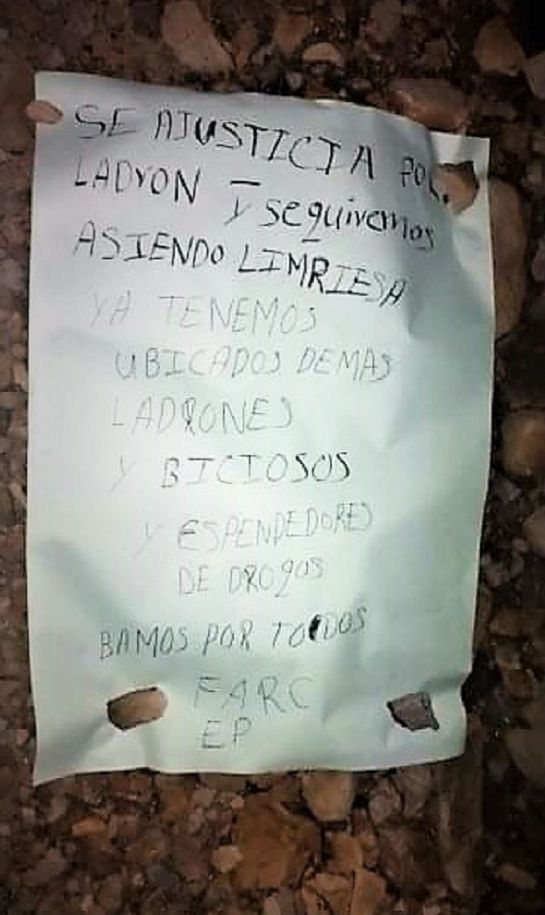 SE AJUSTICIA POR.
LADRON - Y seguiremos
ASIENDO LIMRIESA
YA TENEMOS
UBICADOS DEMAS
LADRONES
Y BICIOSOS
Y ESPENDEDORES
DE DROgas
BAMOS POR TODOS
FARC
EP